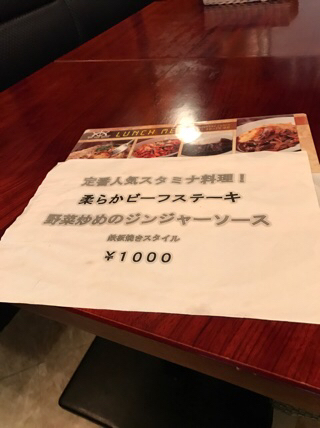 LUNCH MENU
定番人気スタミナ料理！
柔らかビーフステーキ
野菜炒めのジンジャーソース
鉄板焼きスタイル
￥1000